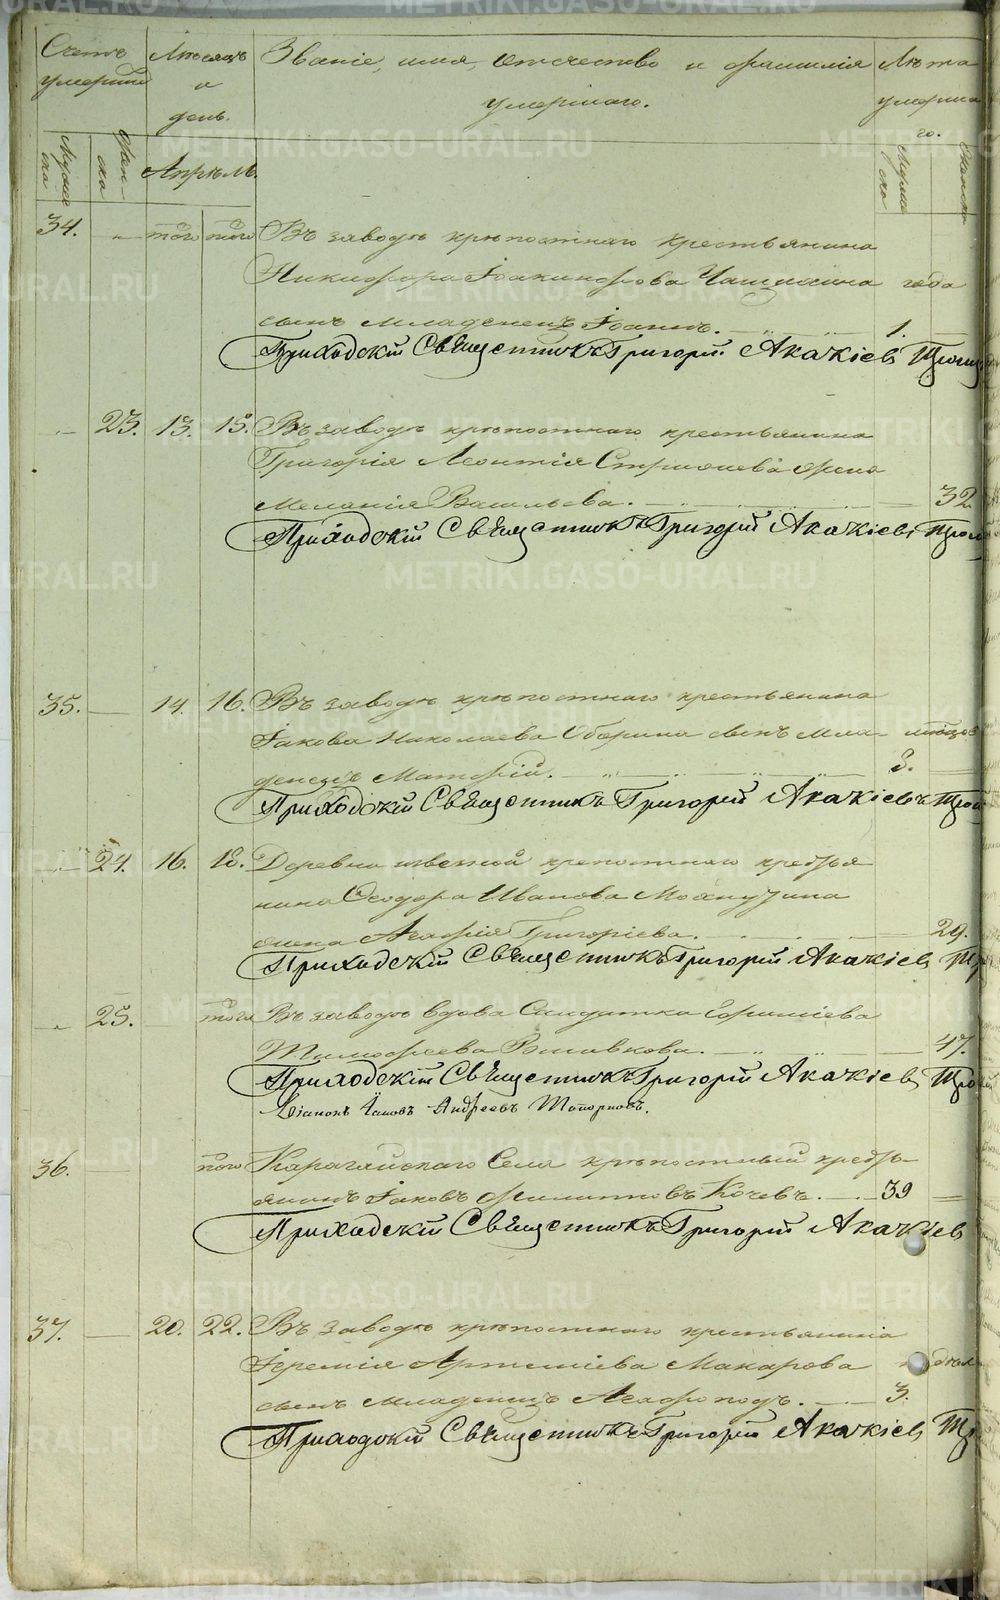 Счетъ умершихъ
Мѣсяцъ и день.
Званіе, имя, отчество и фамилія умершаго.
Лѣта умершаго.
Мужеска
Женска
Апрѣль.
Мужеска
Женска
34. — того того Въ заводѣ крѣпостнаго крестьянина
Никифора Іоакинфова Чащихина года
сынъ младенецъ Іоаннъ. 1. —
Приходскій Священникъ Григорій Акакіевъ
— 23. 13. 15. Въ заводѣ крѣпостнаго крестьянина
Григорія Леонтія жена
Меланія Васильева. 32.
Приходскій Священникъ Григорій Акакіевъ
35. — 14. 16. Въ заводѣ крѣпостнаго крестьянина
Іакова Николаева Оборина сынъ мла-
денецъ Матфій. 3. —
Приходскій Священникъ Григорій Акакіевъ
— 24. 16. 18. Деревни крепостнаго кресья
нина Ѳеодора Иванова
жена Агафія Григоріева. 29.
Приходскій Священникъ Григорій Акакіевъ
— 25. того Въ заводѣ вдова Солдатка
Тимофеева 47.
Приходскій Священникъ Григорій Акакіевъ
Андреевъ Топорковъ.
36. — того Карагайскаго Села крѣпостный кресь-
янинъ Іаковъ Филипповъ Кочевъ. 39 —
Приходскій Священникъ Григорій Акакіевъ
37. — 20. 22. Въ заводѣ крѣпостнаго крестьянина
Іеремія Артеміева Макарова
сынъ младенецъ Агафоподъ. 3.
Приходскій Священникъ Григорій Акакіевъ
METRIKI.GASO-URAL.RU